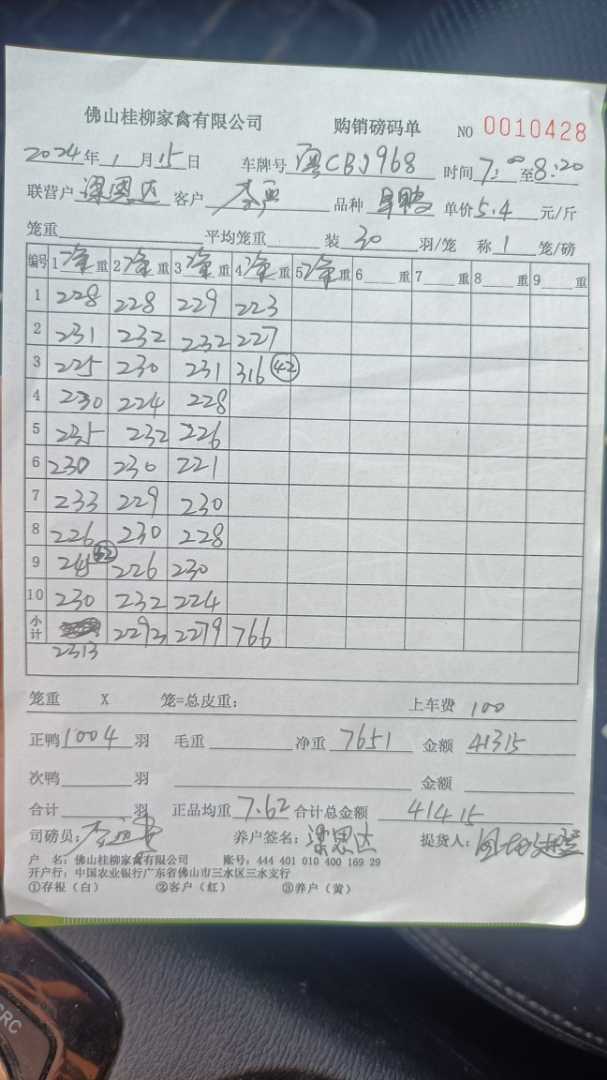 佛山桂柳家禽有限公司 购销磅码单 NO 0010428
2024年1月15日 车牌号 粤CBJ968 时间7:00至8:20
联营户 梁恩达 客户 品种 单价5.4元/斤
笼重 平均笼重 装30羽/笼 称1笼/磅
编号 1净重 2净重 3净重 4净重 5净重 6重 7重 8重 9重
1 228 228 229 223
2 231 232 232 227
3 225 230 231 316 (42)
4 230 224 228
5 235 232 226
6 230 230 221
7 233 229 230
8 226 230 228
9 245 (32) 226 230
10 230 232 224
小计 2293 2279 766
2313
笼重 X 笼=总皮重: 上车费 100
正鸭1004羽 毛重 净重 7651 金额 41315
次鸭 羽 金额
合计 羽 正品均重7.62 合计总金额 41415
司磅员: 养户签名:梁恩达 提货人:
户 名:佛山桂柳家禽有限公司 账号:444 401 010 400 169 29
开户行:中国农业银行广东省佛山市三水区三水支行
①存根(白) ②客户(红) ③养户(黄)
CRC